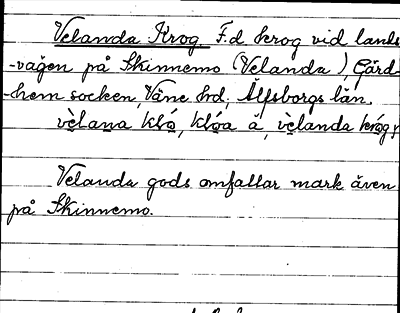 Velanda Krog F.d. krog vid lands
-vägen på Skinnemo (Velanda), Gärd-
-hem socken, Väne hd, Älfsborgs län.
vèlana kló, klóa å, vèlanda króg
Velanda gods omfattar mark även
på Skinnemo.